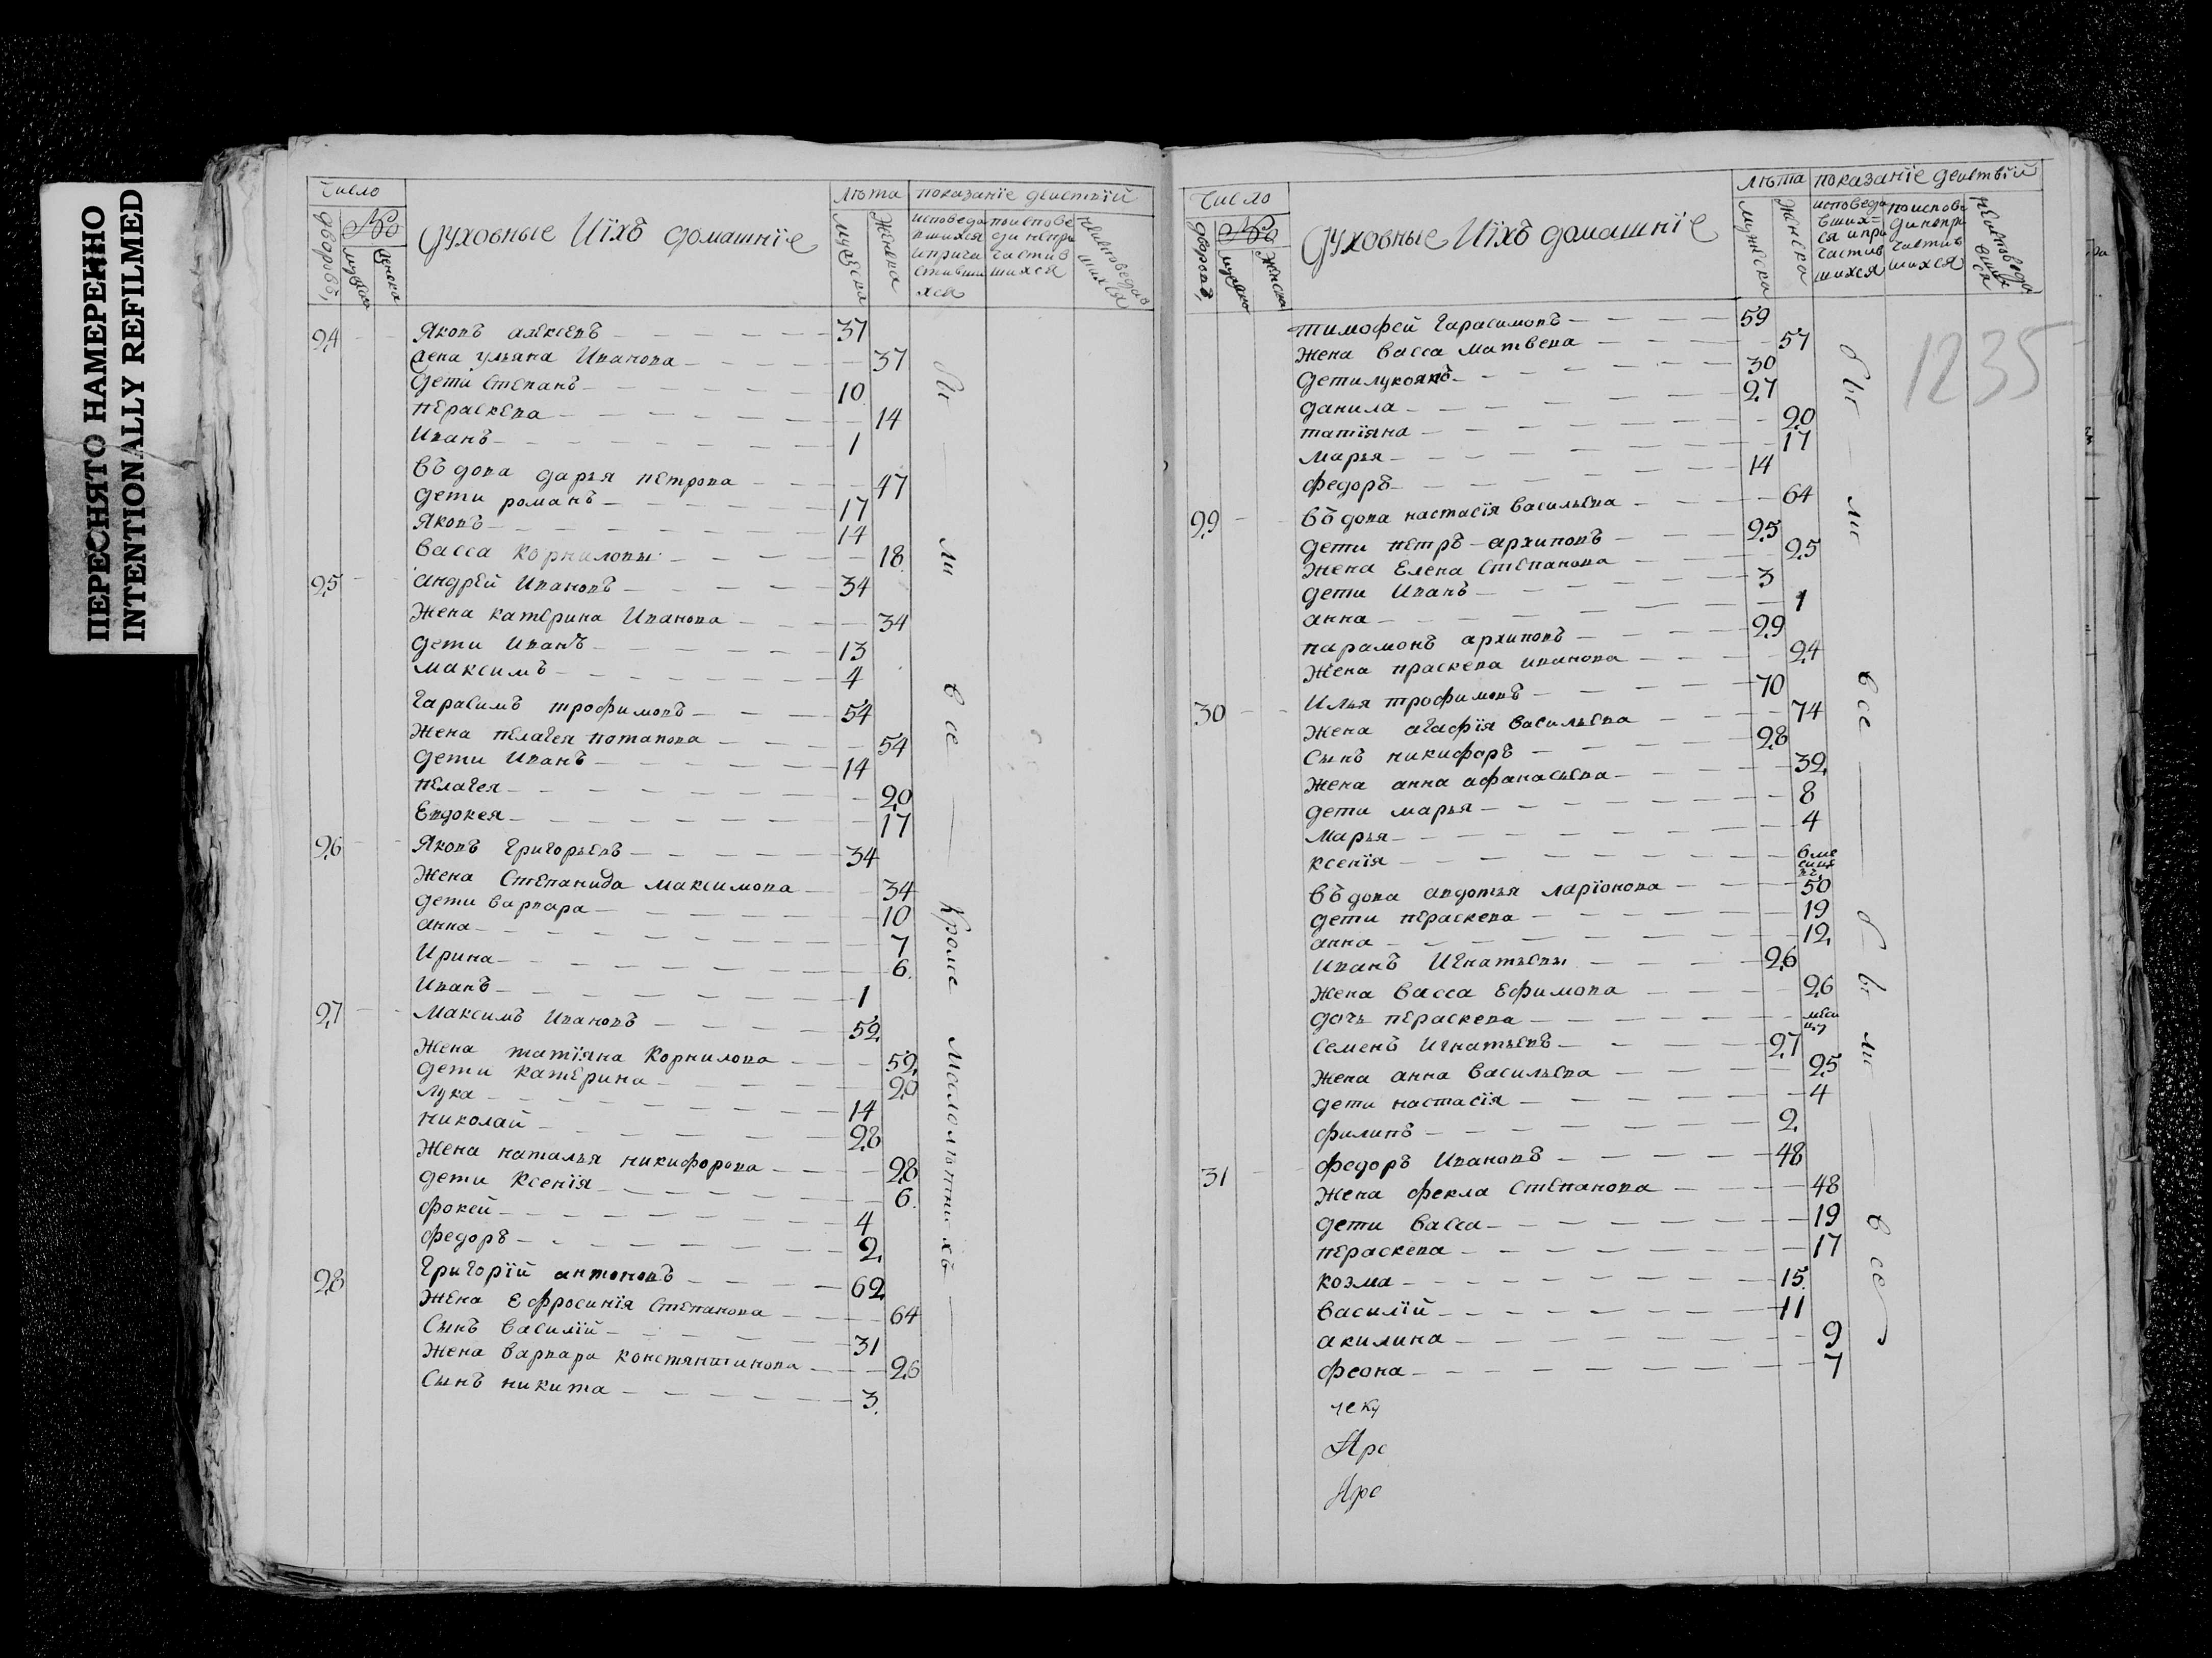 ПЕРЕСНЯТО НАМЕРЕННО
INTENTIONALLY REFILMED
Число
дворовъ
№
мужеска
женска
духовные Иїхъ домашнїе
лѣта
мужеска
Женска
показанїе деиствїй
исповеда
вшихся
иприча
стивши
хся
поиспове
ди непри
частив
шихся
неисповедав
шихся
24 Яковъ алексѣевъ 37
Жена ульяна Иванова 37
дети Степанъ 10
пераскева 14
Иванъ 1
въдова дарья петрова 47
дети романъ 17
Яковъ 14
Васса Корниловы 18
25 андрей Ивановъ 34
Жена катерина Иванова 34
дети Иванъ 13
максимъ 4
гарасимъ трофимовъ 54
Жена пелагея потапова 54
дети Иванъ 14
пелагея 20
Евдокея 17
26 Яковъ Григорьевъ 34
Жена Степанида максимова 34
дети варвара 10
анна 7
Ирина 6
Иванъ 1
27 Максимъ Ивановъ 52
Жена татїяна Корнилова 52
дети катерина 20
лука 14
николай 28
Жена наталья никифорова 28
дети Ксенїя 6
фокей 4
федоръ 2
28 Григорїй антоновъ 62
Жена Ефросинїя Степанова 64
Сынъ василїй 31
Жена варвара константинова 26
Сынъ никита 3
бы ли все кроме Мололѣтнихъ
Число
дворовъ
№
мужеско
женска
духовные Иїхъ домашнїе
лѣта
мужеска
Женска
показанїе деиствїй
исповеда
вших=
ся ипри
частив
шихся
поиспове
ди непри
частив
шихся
неисповеда
вших
ся
1235
тимофей гарасимовъ 59
Жена васса матвева 57
дети лукоянъ 30
данила 27
татїяна 20
марья 17
федоръ 14
29 въдова настасїя васильева 64
дети петръ архиповъ 25
Жена Елена Степанова 25
дети Иванъ 3
анна 1
парамонъ архиповъ 29
Жена праскева иванова 24
30 Илья трофимовъ 70
Жена агафїя васильева 74
Сынъ никифоръ 28
Жена анна афанасьева 32
дети марья 8
Марья 4
ксенїя 6 ме
въдова авдотья ларїонова 50
дети пераскева 19
анна 12
Иванъ Игнатьевы 26
Жена васса Ефимова 26
дочь пераскева меси
цу
Семенъ Игнатьевъ 27
Жена анна васильева 25
дети настасїя 4
филипъ 2
31 федоръ Ивановъ 48
Жена фекла Степанова 48
дети васса 19
пераскева 17
козма 15
василїй 11
акилина 9
феона 7
чеку
Аре
Аре
бы ли все бы ли все